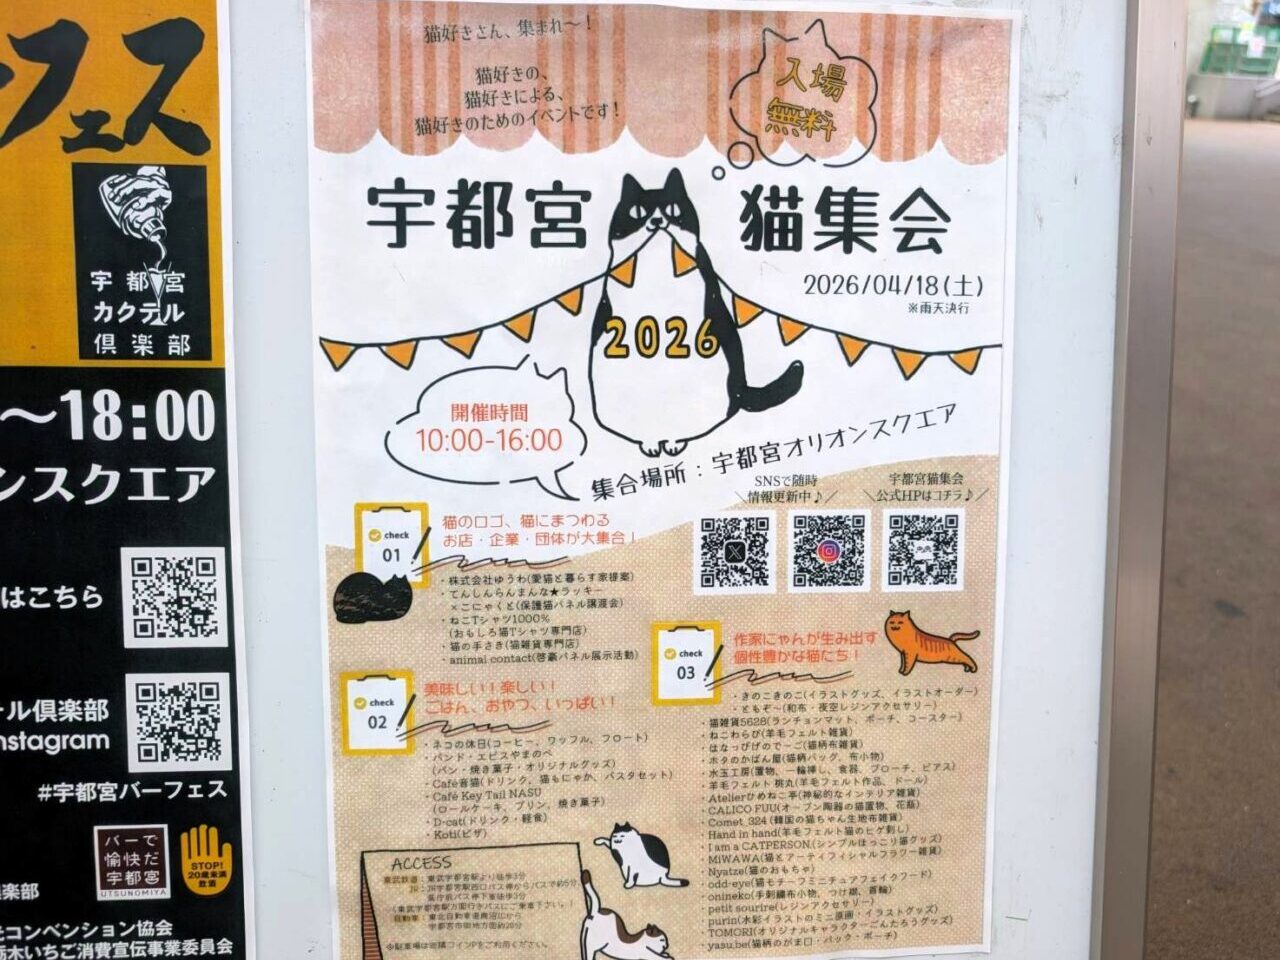 フェス
宇都宮
カクテル
倶楽部
〜18:00
ンスクエア
はこちら
ール倶楽部
nstagram
#宇都宮バーフェス
バーで
愉快だ
宇都宮
UTSUNOMIYA
STOP!
20歳未満
飲酒
倶楽部
光コンベンション協会
栃木いちご消費宣伝事業委員会
猫好きさん、集まれ〜!
猫好きの、
猫好きによる、
猫好きのためのイベントです!
入場
無料
宇都宮 猫集会
2026/04/18(土)
※雨天決行
2026
開催時間
10:00-16:00
集合場所:宇都宮オリオンスクエア
SNSで随時
\情報更新中♪/
宇都宮猫集会
\公式HPはコチラ♪/
check
01
猫のロゴ、猫にまつわる
お店・企業・団体が大集合!
・株式会社ゆうわ(愛猫と暮らす家提案)
・てんしんらんまんな★ラッキー
×こにゃくと(保護猫パネル譲渡会)
・ねこTシャツ1000%
(おもしろ猫Tシャツ専門店)
・猫の手さき(猫雑貨専門店)
・animal contact(啓豪パネル展示活動)
check
02
美味しい!楽しい!
ごはん、おやつ、いっぱい!
・ネコの休日(コーヒー、ワッフル、フロート)
・パンド・エピスやまのべ
(パン・焼き菓子・オリジナルグッズ)
・Café音猫(ドリンク、猫もにゃか、パスタセット)
・Café Key Tail NASU
(ロールケーキ、プリン、焼き菓子)
・D-cat(ドリンク・軽食)
・Koti(ピザ)
check
03
作家にゃんが生み出す
個性豊かな猫たち!
・きのこきのこ(イラストグッズ、イラストオーダー)
・ともぞ〜(和布・夜空レジンアクセサリー)
・猫雑貨5628(ランチョンマット、ポーチ、コースター)
・ねこわらび(羊毛フェルト雑貨)
・はなっぴげのでーご(猫柄布雑貨)
・ホタのかばん屋(猫柄バッグ、布小物)
・水玉工房(置物、一輪挿し、食器、ブローチ、ピアス)
・羊毛フェルト 桃丸(羊毛フェルト作品、ドール)
・Atelierひめねこ亭(神秘的なインテリア雑貨)
・CALICO FUU(オーブン陶器の猫置物、花瓶)
・Comet_324(韓国の猫ちゃん生地布雑貨)
・Hand in hand(羊毛フェルト猫のヒゲ刺し)
・I am a CATPERSON(シンプルほっこり猫グッズ)
・MiWAWA(猫とアーティフィシャルフラワー雑貨)
・Nyatze(猫のおもちゃ)
・odd-eye(猫モチーフミニチュアフェイクフード)
・onineko(手刺繍布小物、つけ襟、首輪)
・petit sourire(レジンアクセサリー)
・purin(水彩イラストのミニ原画・イラストグッズ)
・TOMORI(オリジナルキャラクターごんたろうグッズ)
・yasu.be(猫柄のがま口・バック・ポーチ)
ACCESS
東武鉄道:東武宇都宮駅より徒歩3分
JR:JR宇都宮駅西口バス停からバスで約5分
県庁前バス停下車徒歩3分
(東武宇都宮駅方面行きバスにご乗車下さい。)
自動車:東北自動車道鹿沼ICから
宇都宮市街地方面約20分
※駐車場は近隣コインPをご利用ください。